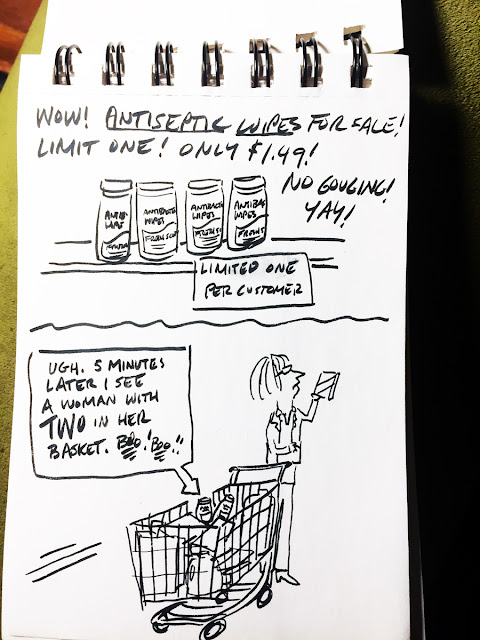 WOW! ANTISEPTIC WIPES FOR SALE!
LIMIT ONE! ONLY $1.49!
NO GOUGING!
YAY!
ANTIBAC
WIPES
ANTIBACTE
WIPES
FRESH SCE
ANTIBACT
WIPES
FRESH S
ANTIBAC
WIPES
FRESH S
LIMITED ONE
PER CUSTOMER
UGH. 5 MINUTES
LATER I SEE
A WOMAN WITH
TWO IN HER
BASKET. BOO! BOO!!